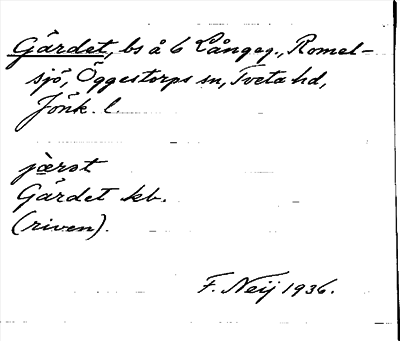 Gärdet, bs å 6 Långeg., Romel-
sjö, Öggestorps sn, Tveta hd,
Jönk. l.
jærət
Gärdet kb.
(riven).
F. Neij 1936.